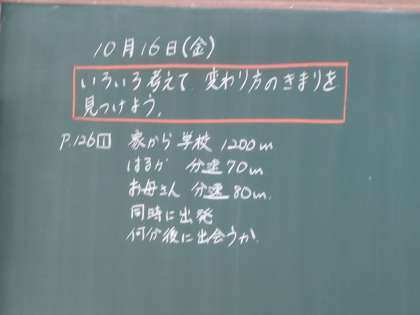 10月16日(金)
いろいろ考えて、変わり方のきまりを
見つけよう。
P.126 1 家から学校 1200m
はるか 分速70m
お母さん 分速80m
同時に出発
何分後に出会うか